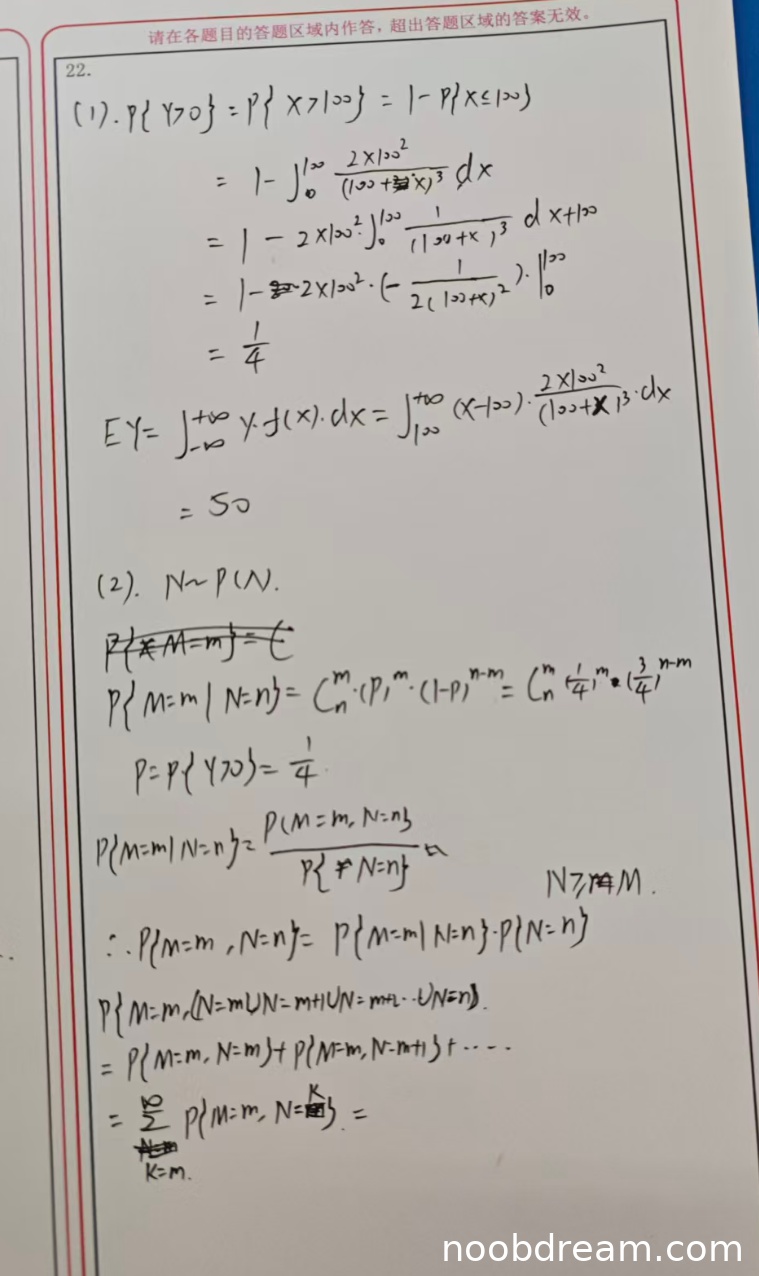 请在各题目的答题区域内作答，超出答题区域的答案无效。
22.
(1). P{Y>0} = P{X>100} = 1-P{X≤100}
= 1-∫₀¹⁰⁰ 2×100²/(100+x)³ dx
= 1-2×100²·∫₀¹⁰⁰ 1/(100+x)³ dx+100
= 1-2×100²·(-1/2(100+x)²)·|₀¹⁰⁰
= 1/4
EY= ∫_{-∞}^{+∞} y·f(x)·dx = ∫_{100}^{+∞} (x-100)·2×100²/(100+x)³·dx
= 50
(2). N~P(N).
P{M=m}=C
P{M=m|N=n}= C_n^m·(P)^m·(1-P)^{n-m} = C_n^m (1/4)^m·(3/4)^{n-m}
P=P{Y>0}=1/4.
P{M=m|N=n}= P{M=m, N=n}/P{N=n}
N≥M.
∴P{M=m, N=n}= P{M=m|N=n}·P{N=n}
P{M=m,(N=m∪N=m+1∪N=m+2…∪N=n)}.
= P{M=m, N=m}+P{M=m, N=m+1}+····
= ∑_{K=m}^{∞} P{M=m, N=K}. =
noobdream.com